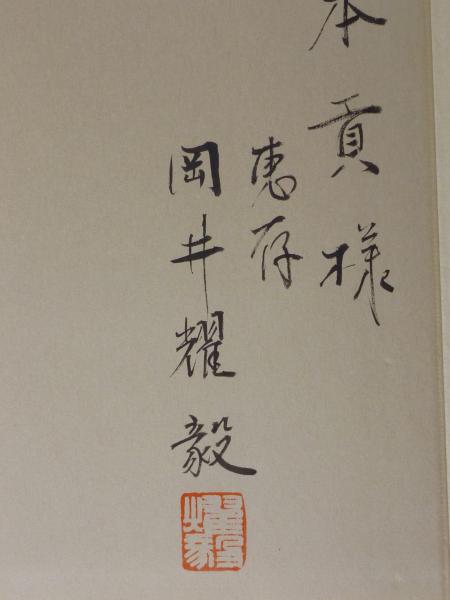 本貢様
恵存
岡井耀毅
耀毅